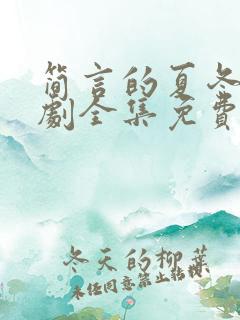 简言的夏冬
劇全集免費
冬天的柳葉
未经同意禁止转载